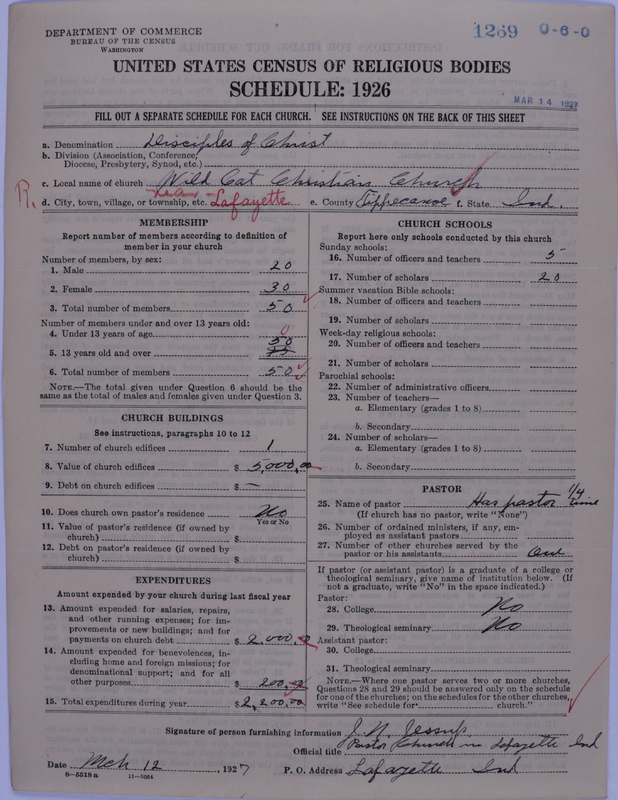 DEPARTMENT OF COMMERCE
BUREAU OF THE CENSUS
WASHINGTON
1269 0-6-0
UNITED STATES CENSUS OF RELIGIOUS BODIES
SCHEDULE: 1926
MAR 14 1927
FILL OUT A SEPARATE SCHEDULE FOR EACH CHURCH. SEE INSTRUCTIONS ON THE BACK OF THIS SHEET
a. Denomination Disciples of Christ
b. Division (Association, Conference, Diocese, Presbytery, Synod, etc.)
c. Local name of church Wild Cat Christian Church
R. d. City, town, village, or township, etc. Lafayette e. County Tippecanoe f. State Ind.
MEMBERSHIP
Report number of members according to definition of
member in your church
Number of members, by sex:
1. Male 20
2. Female 30
3. Total number of members 50
Number of members under and over 13 years old:
4. Under 13 years of age 0
5. 13 years old and over 50
6. Total number of members 50
NOTE.—The total given under Question 6 should be
same as the total of males and females given under Question 3.
CHURCH BUILDINGS
See instructions, paragraphs 10 to 12
7. Number of church edifices 1
8. Value of church edifices $ 5,000,00
9. Debt on church edifices $ —
10. Does church own pastor's residence No
Yes or No
11. Value of pastor's residence (if owned by
church) $
12. Debt on pastor's residence (if owned by
church) $
EXPENDITURES
Amount expended by your church during last fiscal year
13. Amount expended for salaries, repairs,
and other running expenses; for im-
provements or new buildings; and for
payments on church debt $ 2,000,00
14. Amount expended for benevolences, in-
cluding home and foreign missions; for
denominational support; and for all
other purposes $ 200.00
15. Total expenditures during year $ 2,200,00
CHURCH SCHOOLS
Report here only schools conducted by this church
Sunday schools:
16. Number of officers and teachers 5
17. Number of scholars 20
Summer vacation Bible schools:
18. Number of officers and teachers
19. Number of scholars
Week-day religious schools:
20. Number of officers and teachers
21. Number of scholars
Parochial schools:
22. Number of administrative officers
23. Number of teachers—
a. Elementary (grades 1 to 8)
b. Secondary
24. Number of scholars—
a. Elementary (grades 1 to 8)
b. Secondary
PASTOR
25. Name of pastor Has pastor 1/4 time
(If church has no pastor, write "None")
26. Number of ordained ministers, if any, em-
ployed as assistant pastors
27. Number of other churches served by the
pastor or his assistants One
If pastor (or assistant pastor) is a graduate of a college or
theological seminary, give name of institution below. (If
not a graduate, write "No" in the space indicated.)
Pastor:
28. College No
29. Theological seminary No
Assistant pastor:
30. College
31. Theological seminary
NOTE.—Where one pastor serves two or more churches,
Questions 28 and 29 should be answered only on the schedule
for one of the churches; on the schedules for the other churches,
write "See schedule for church."
Signature of person furnishing information J. N. Jessup
Official title Pastor Church in Lafayette Ind
Date Mch 12, 1927 P. O. Address Lafayette Ind
8—5518 a 11—9024